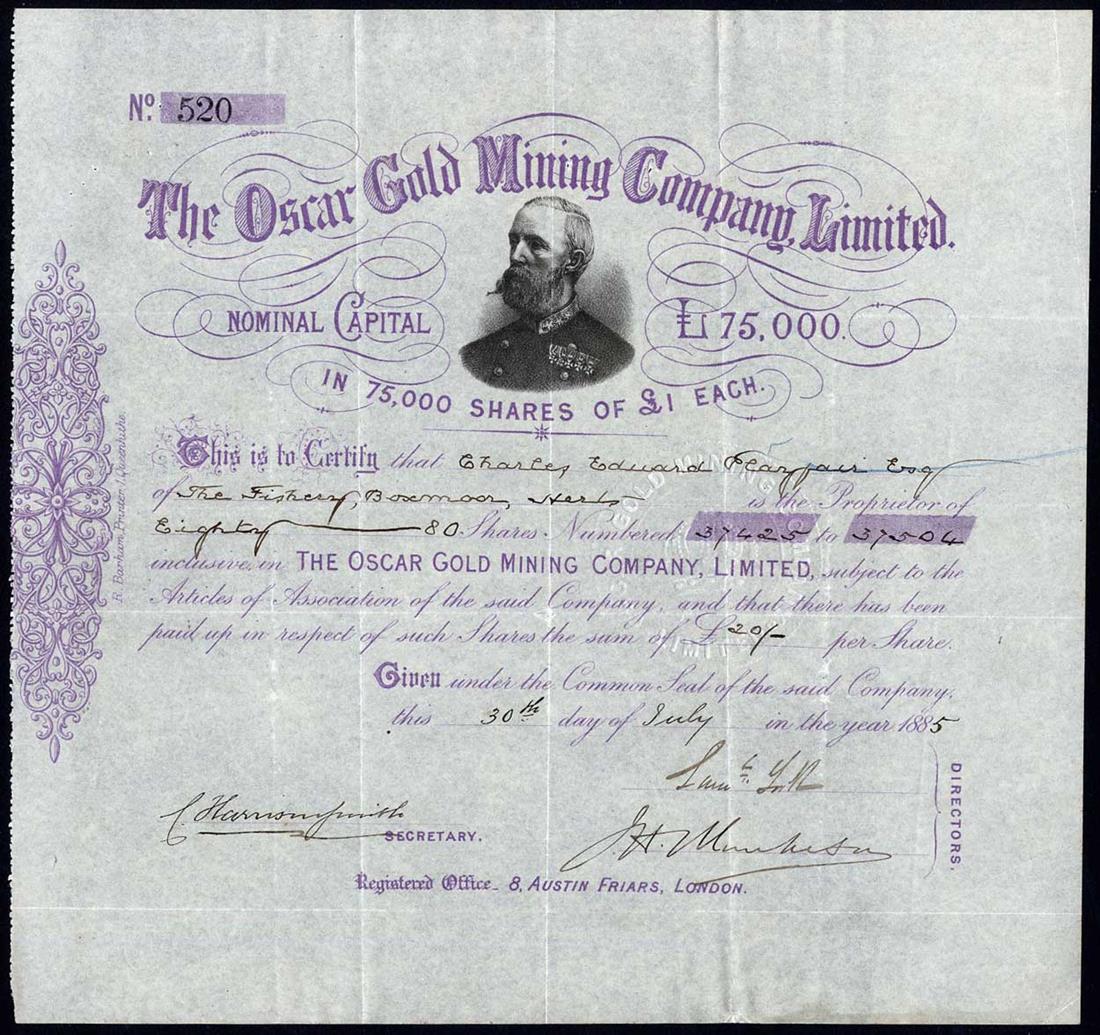 No. 520
The Oscar Gold Mining Company, Limited.
NOMINAL CAPITAL £75,000.
IN 75,000 SHARES OF £1 EACH.
This is to Certify that Charles Edward Playfair Esq
of The Fishery, Boxmoor, Herts is the Proprietor of
Eighty 80 Shares Numbered 37425 to 37504
inclusive, in THE OSCAR GOLD MINING COMPANY, LIMITED, subject to the
Articles of Association of the said Company, and that there has been
paid up in respect of such Shares the sum of £ 20/- per Share.
Given under the Common Seal of the said Company,
this 30th day of July in the year 1885
C. Harrison Smith
SECRETARY.
J. H.
DIRECTORS.
Registered Office - 8, AUSTIN FRIARS, LONDON.
R. Barham, Printer, 1, Queenhithe.
GOLD MINING